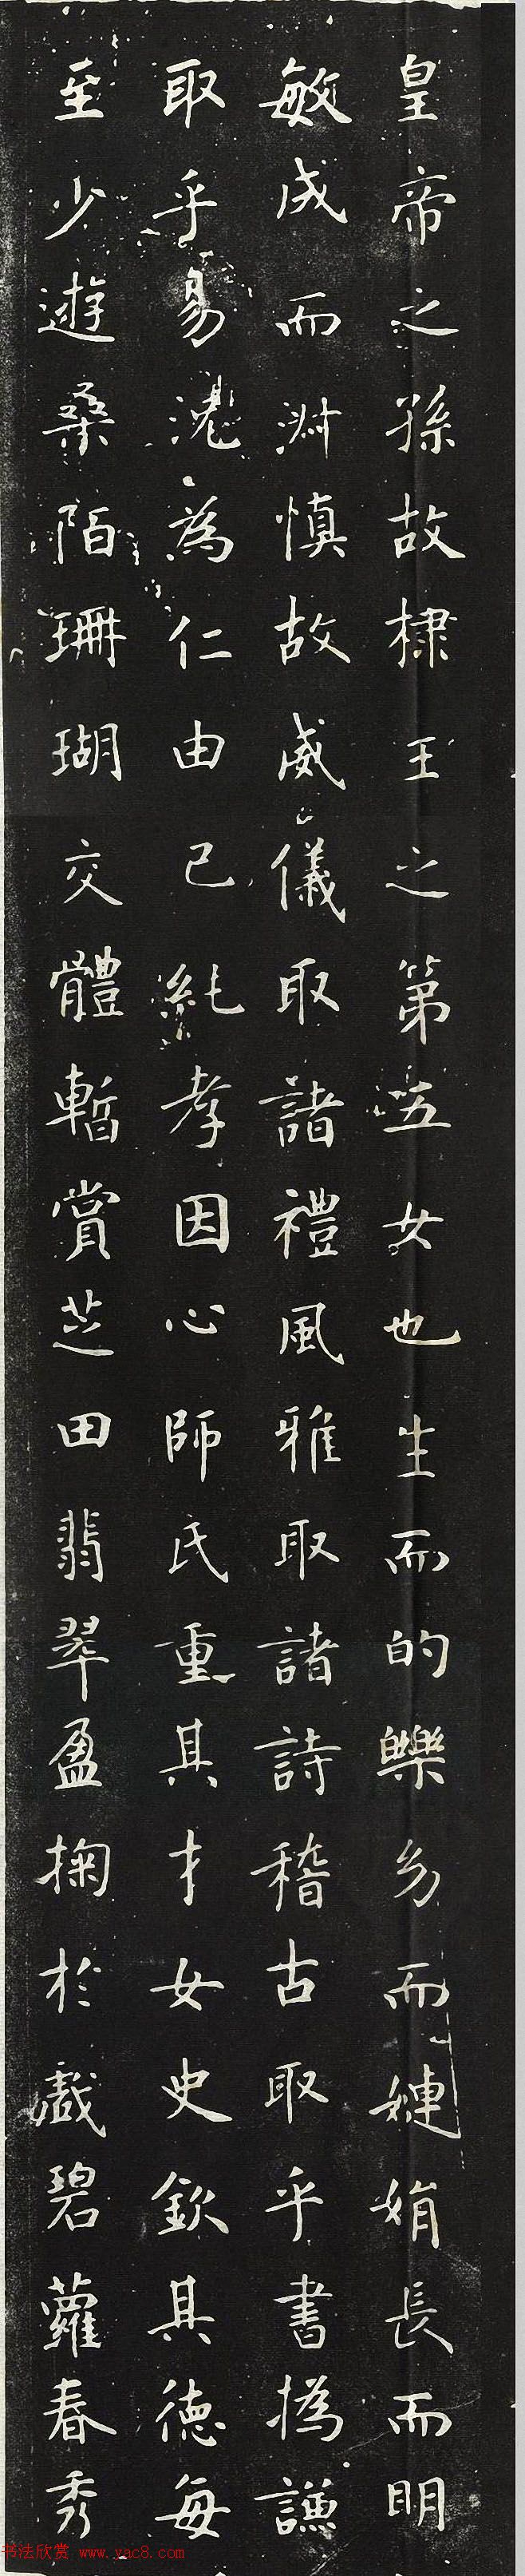 皇帝之孫故棣王之第五女也生而的皪幼而嬋娟長而明
敏成而淑慎故威儀取諸禮風雅取諸詩稽古取乎書撝謙
取乎易況為仁由己純孝因心師氏重其才女史欽其德每
至少遊桑陌珊瑚交體暫賞芝田翡翠盈掬於戲碧蘿春秀
书法欣赏 www.yac8.com